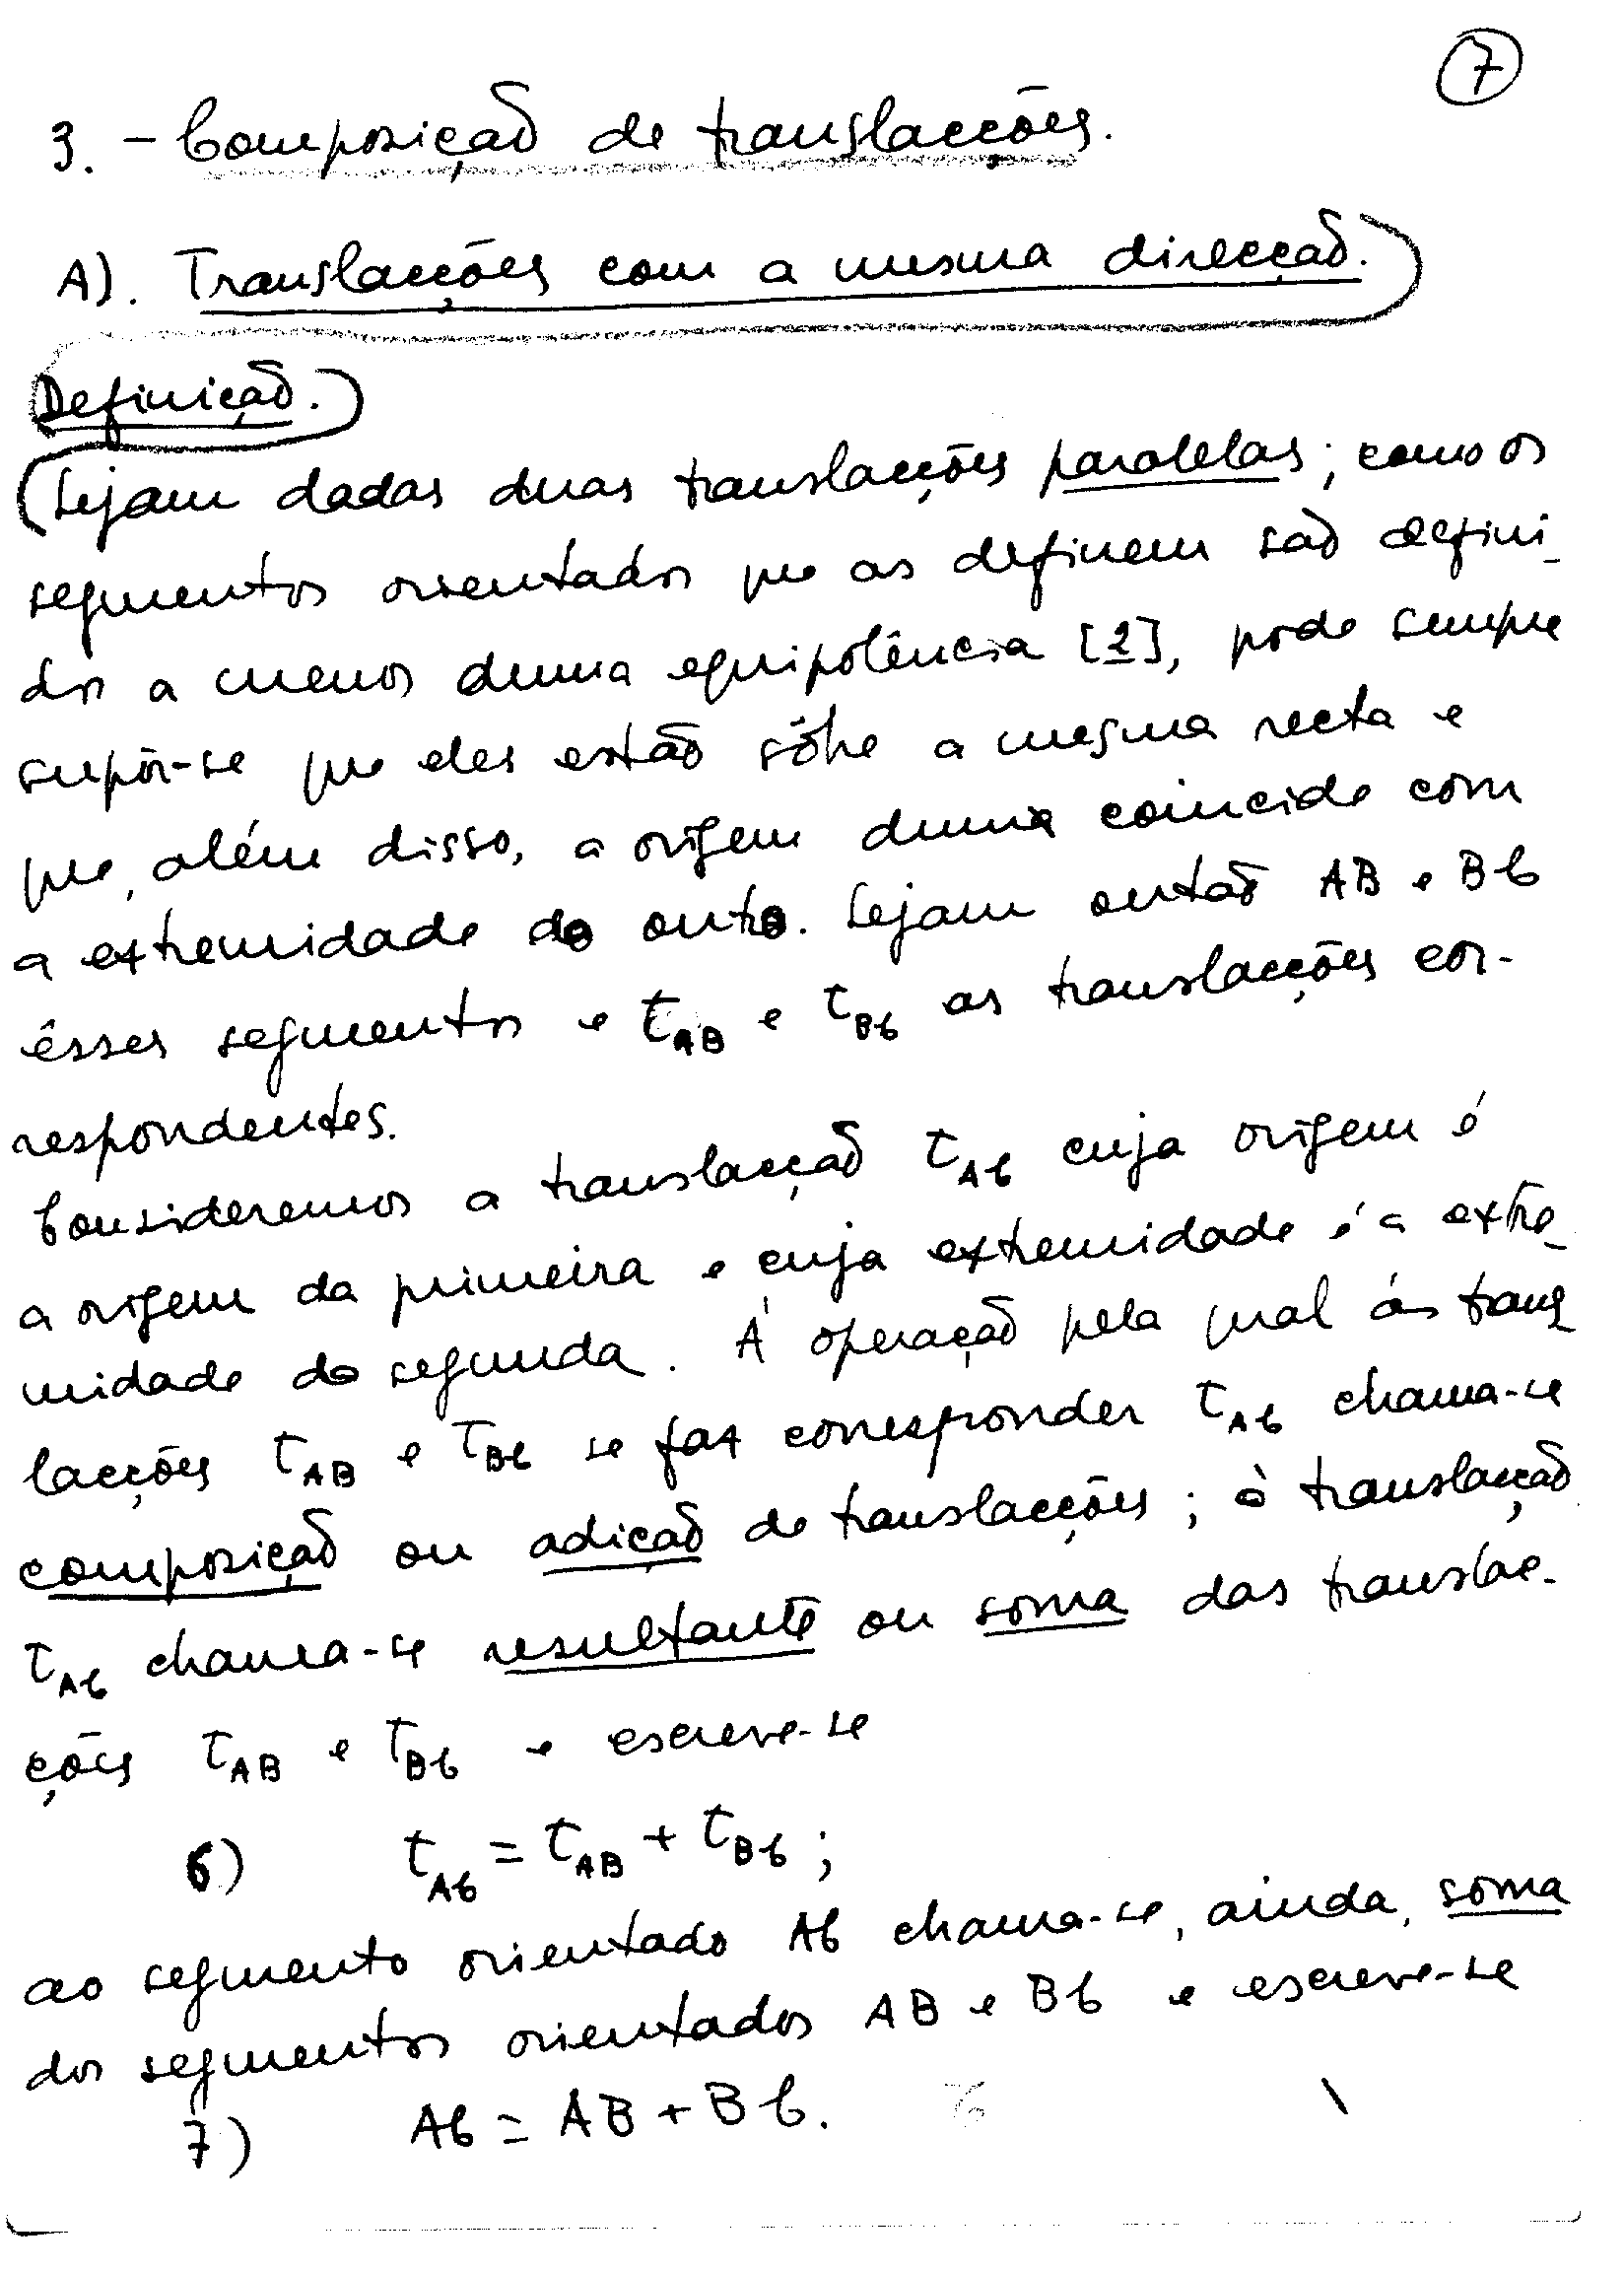 7
3. - Composição de translacções.
A). Translacções com a mesma direcção.
Definição.
Sejam dadas duas translacções paralelas; como os
segmentos orientados que as definem são defini-
dos a menos duma equipolência [2], pode sempre
supôr-se que eles estão sôbre a mesma recta e
que, além disso, a origem duma coincide com
a extremidade do outro. Sejam então AB e BC
êsses segmentos e τ_AB e τ_BC as translacções cor-
respondentes.
Consideremos a translacção τ_AC cuja origem é
a origem da primeira e cuja extremidade é a extre-
midade da segunda. A operação pela qual às trans-
lacções τ_AB e τ_BC se faz corresponder τ_AC chama-se
composição ou adição de translacções; à translacção
τ_AC chama-se resultante ou soma das translac-
ções τ_AB e τ_BC e escreve-se
6) τ_AC = τ_AB + τ_BC ;
ao segmento orientado AC chama-se, ainda, soma
dos segmentos orientados AB e BC e escreve-se
7) AC = AB + BC.